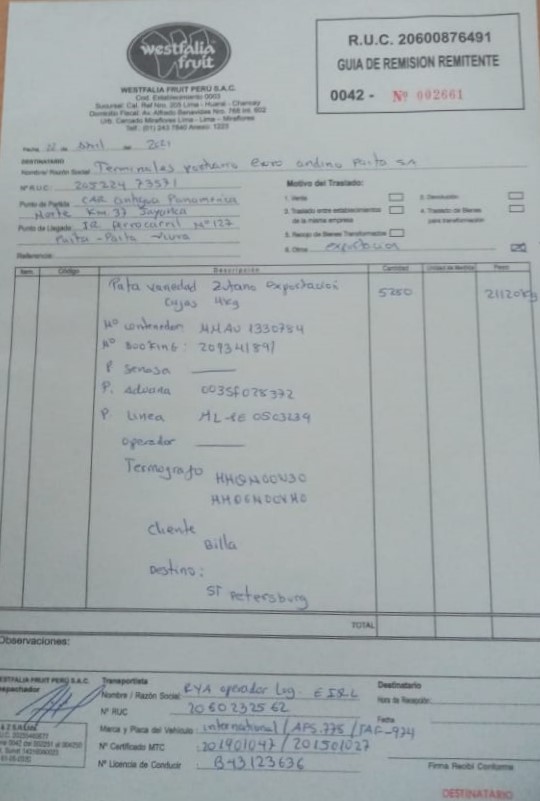 westfalia
fruit
WESTFALIA FRUIT PERÚ S.A.C.
Cod. Establecimiento 0003
Sucursal: Cal. Ref Nro. 205 Lima - Huaral - Chancay
Domicilio Fiscal: Av. Alfredo Benavides Nro. 768 Int. 602
Urb. Cercado Miraflores Lima - Lima - Miraflores
Telf.: (01) 243 7840 Anexo: 1223
R.U.C. 20600876491
GUIA DE REMISIÓN REMITENTE
0042 - Nº 002661
Fecha, 22 de Abril de 2021
DESTINATARIO
Nombre/ Razón Social: Terminales portuario Euro andino Paita SA
Nº RUC: 20522473571
Motivo del Traslado:
Punto de Partida CAR antigua Panamerica
Norte Km. 37 Sayanca
Punto de Llegada: JR ferrocarril Nº 127
Paita - Paita - Piura
1. Venta
2. Devolución
3. Traslado entre establecimientos
de la misma empresa
4. Traslado de Bienes
para transformación
5. Recojo de Bienes Transformados
6. Otros exportacion
Referencia:
Item Código Descripción Cantidad Unidad de Medida Peso
Palta variedad Zutano Exportación 5280 21120Kg
Cajas 4kg
Nº contenedor MMAU 1330784
Nº Booking: 209341891
P Senasa
P. Aduana 0035F028372
P. Linea ML-PE 0503239
operador
Termografo
Cliente
Billa
Destino:
ST Petersburg
TOTAL
Observaciones:
WESTFALIA FRUIT PERÚ S.A.C.
Despachador
Transportista
Nombre / Razón Social: RYA operador Log. EIRL
Nº RUC
Marca y Placa del Vehículo: international / APS.775 / TAF-974
Nº Certificado MTC 201901047 / 201501027
Nº Licencia de Conducir B43123636
Destinatario
Hora de Recepción:
Fecha
Firma Recibí Conforme
DESTINATARIO